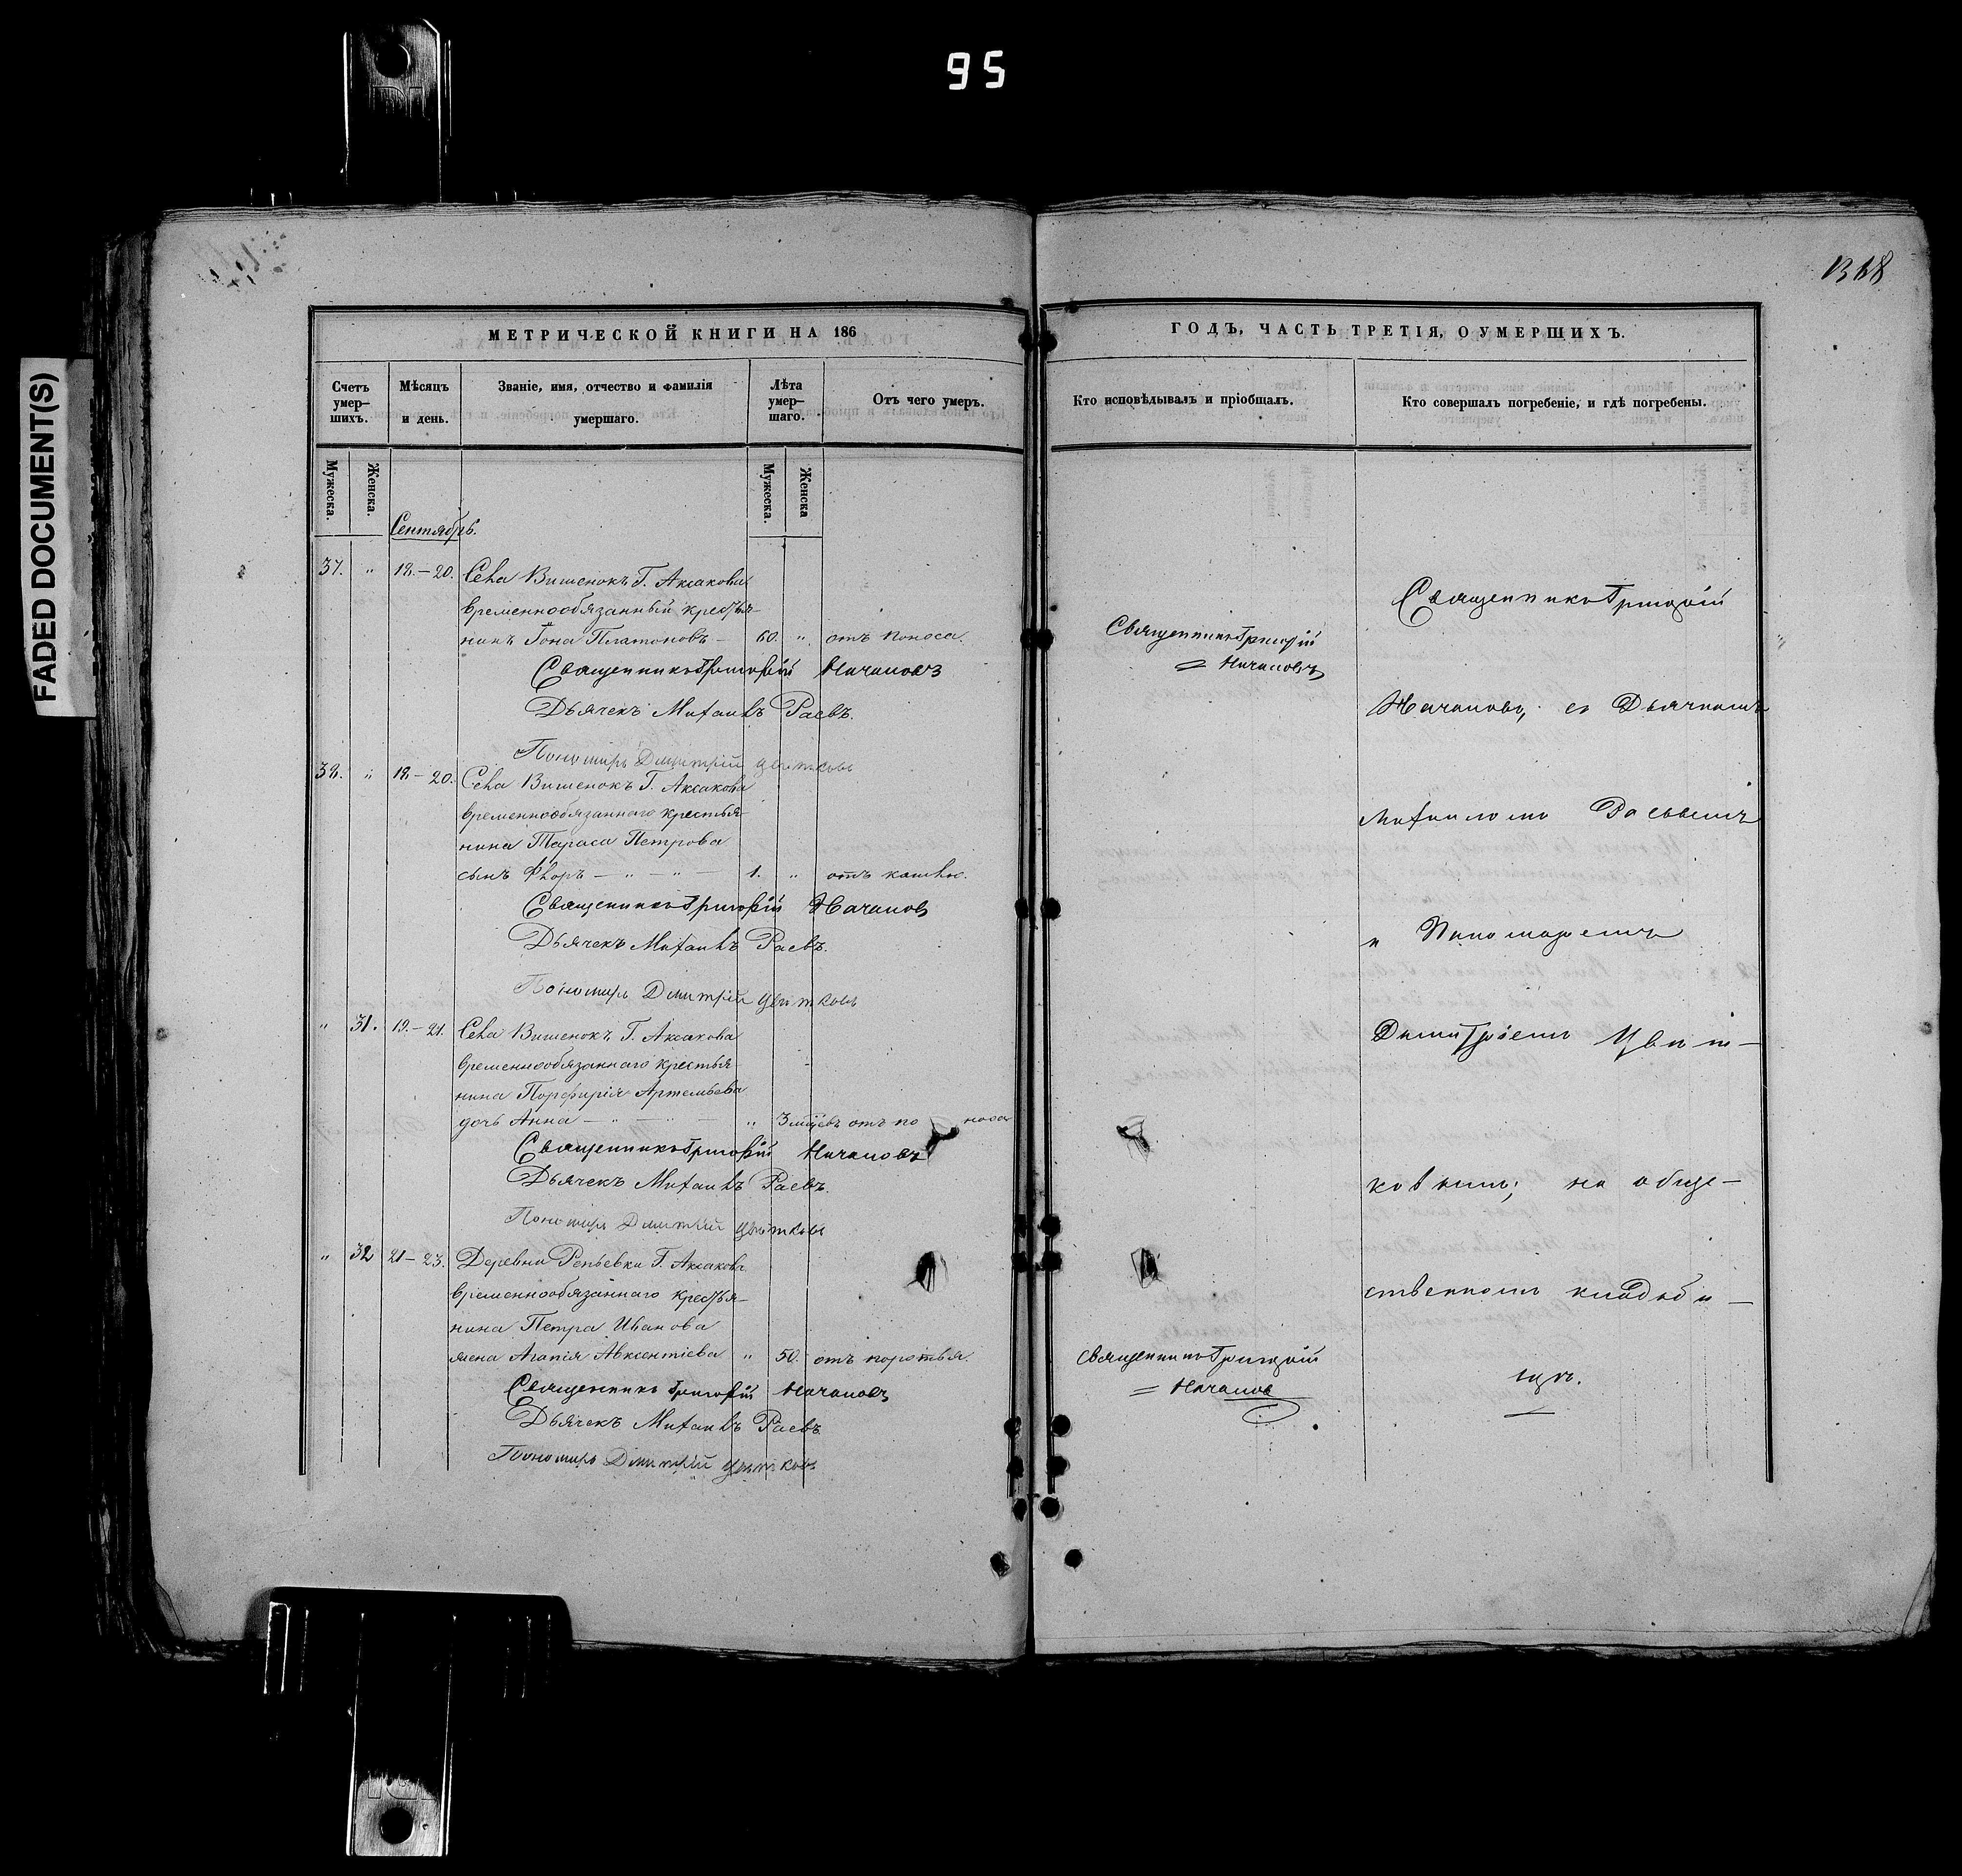 95
FADED DOCUMENT(S)
1368
МЕТРИЧЕСКОЙ КНИГИ НА 186
ГОДЪ, ЧАСТЬ ТРЕТІЯ, О УМЕРШИХЪ.
Счетъ умер-шихъ.
Мѣсяцъ и день.
Званіе, имя, отчество и фамилія умершаго.
Лѣта умер-шаго.
Отъ чего умеръ.
Кто исповѣдывалъ и пріобщалъ.
Кто совершалъ погребеніе, и гдѣ погребены.
Мужеска.
Женска.
Мужеска.
Женска
Сентябрь.
37. " 18.-20. Села Вишенокъ Г. Аксакова
временнообязанный крестья-
нинъ Іона Платоновъ - 60. " отъ поноса.
Священникъ Григорій Начановъ
Дьячекъ Михаилъ Раевъ.
Пономарь Димитрій Цвѣтковъ
38. " 18.-20. Села Вишенокъ Г. Аксакова
временнообязаннаго крестья-
нина Тараса Петрова
сынъ Флоръ - " - " - 1. " отъ кашлю.
Священникъ Григорій Начановъ
Дьячекъ Михаилъ Раевъ.
Пономарь Димитрій Цвѣтковъ
" 31. 19.-21. Села Вишенокъ Г. Аксакова
временнообязаннаго крестья-
нина Порфирія Артемьева
дочь Анна - " - " - " 3 мцевъ отъ поноса
Священникъ Григорій Начановъ
Дьячекъ Михаилъ Раевъ.
Пономарь Димитрій Цвѣтковъ
" 32 21-23. Деревни Репьевки Г. Аксакова
временнообязаннаго крестья-
нина Петра Иванова
жена Агапія Авксентіева " 50. отъ
Священникъ Григорій Начановъ
Дьячекъ Михаилъ Раевъ
Пономарь Димитрій Цвѣтковъ
Священникъ Григорій
= Начановъ
Священникъ Григорій
= Начановъ
Священникъ Григорій
Начановъ, съ Дьячкомъ
Михаиломъ Раевымъ
и Пономаремъ
Димитріемъ Цвѣт-
ковымъ; на обще-
ственномъ кладби-
щѣ.